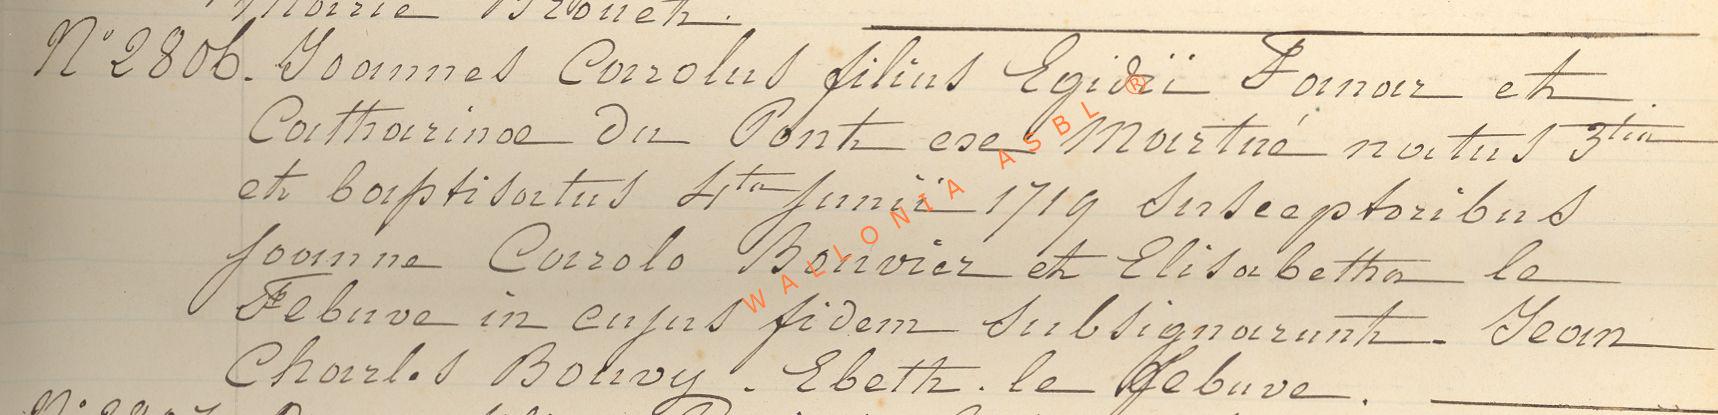 Marie Brouch.
N° 2806. Joannes Carolus filius Egidii Fanar et
Catharinae du Pont ex Martué natus 3tia
et baptisatus 4ta Junii 1719 Susceptoribus
Joanne Carolo Bouvier et Elisabetha le
Febuve in cujus fidem subsignarunt. Jean
Charles Bouvy. Ebeth. le Febuve.
WALLONIA ASBL ®